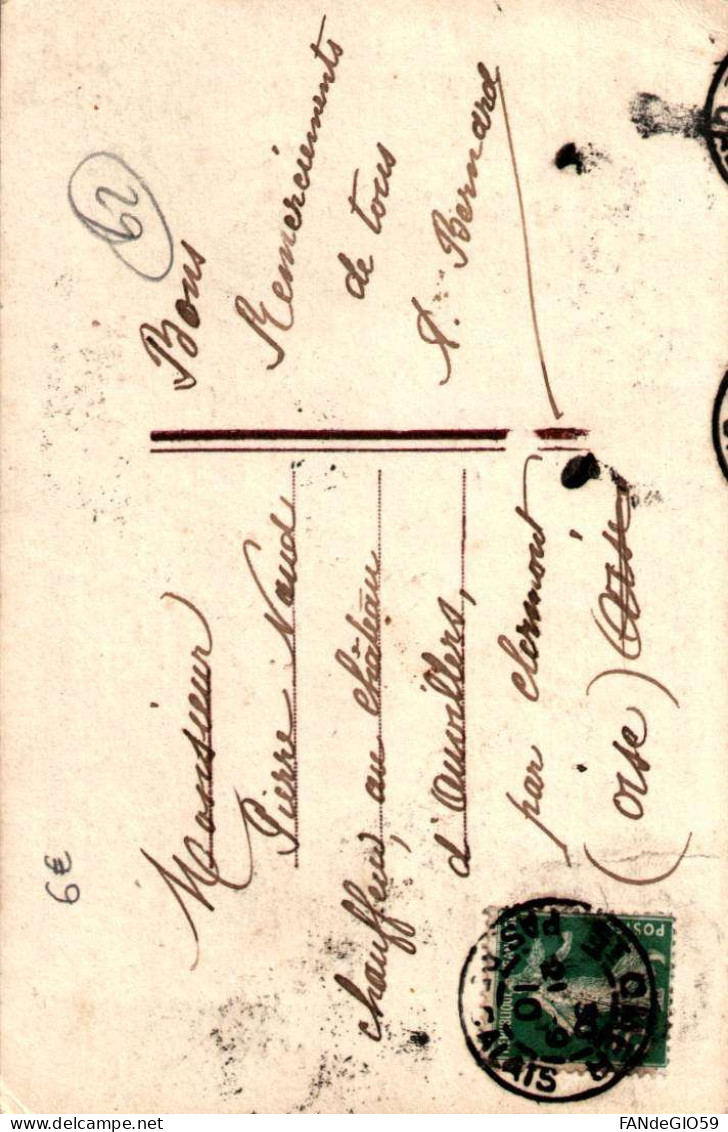 62
Bons
Remerciements
de tous
A. Bernard
Monsieur
Pierre Naud
chauffeur, au château
d'Auvillers,
par Clermont
(Oise) Oise
6€
POS
ALAIS
Delcampe.net
FANdeGIO59